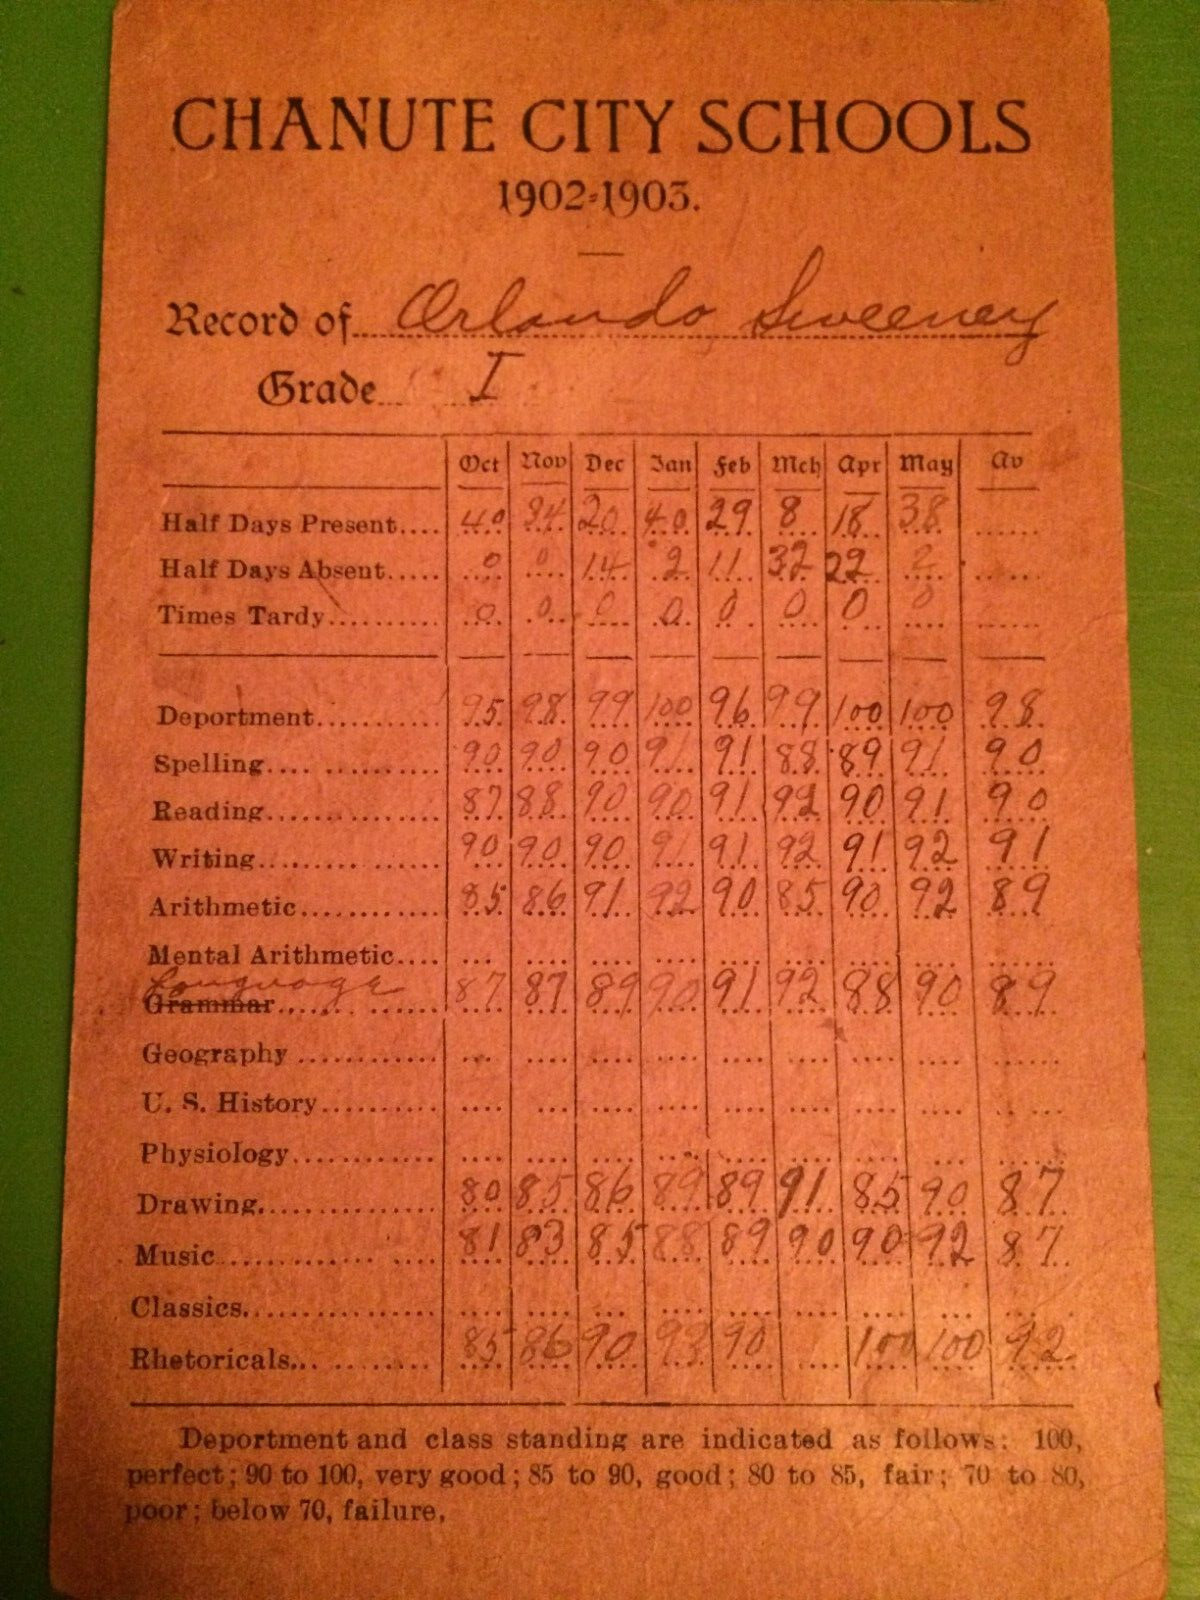 CHANUTE CITY SCHOOLS
1902-1903.
Record of Orlando Sweeney
Grade I
Oct Nov Dec Jan Feb Mch Apr May Av
Half Days Present.... 40 34 20 40 29 8 18 38
Half Days Absent..... 0 0 14 2 11 32 22 2
Times Tardy.......... 0 0 0 0 0 0 0 0
Deportment........... 95 98 99 100 96 99 100 100 98
Spelling.... .......... 90 90 90 91 91 88 89 91 90
Reading.............. 87 88 90 90 91 92 90 91 90
Writing............... 90 90 90 91 91 92 91 92 91
Arithmetic............ 85 86 91 92 90 85 90 92 89
Mental Arithmetic....
Language
Grammar...... ....... 87 87 89 90 91 92 88 90 89
Geography ............
U. S. History..........
Physiology............
Drawing............... 80 85 86 89 89 91 85 90 87
Music............. .... 81 83 85 88 89 90 90 92 87
Classics................
Rhetoricals... ......... 85 86 90 93 90 100 100 92
Deportment and class standing are indicated as follows: 100,
perfect; 90 to 100, very good; 85 to 90, good; 80 to 85, fair; 70 to 80,
poor; below 70, failure.